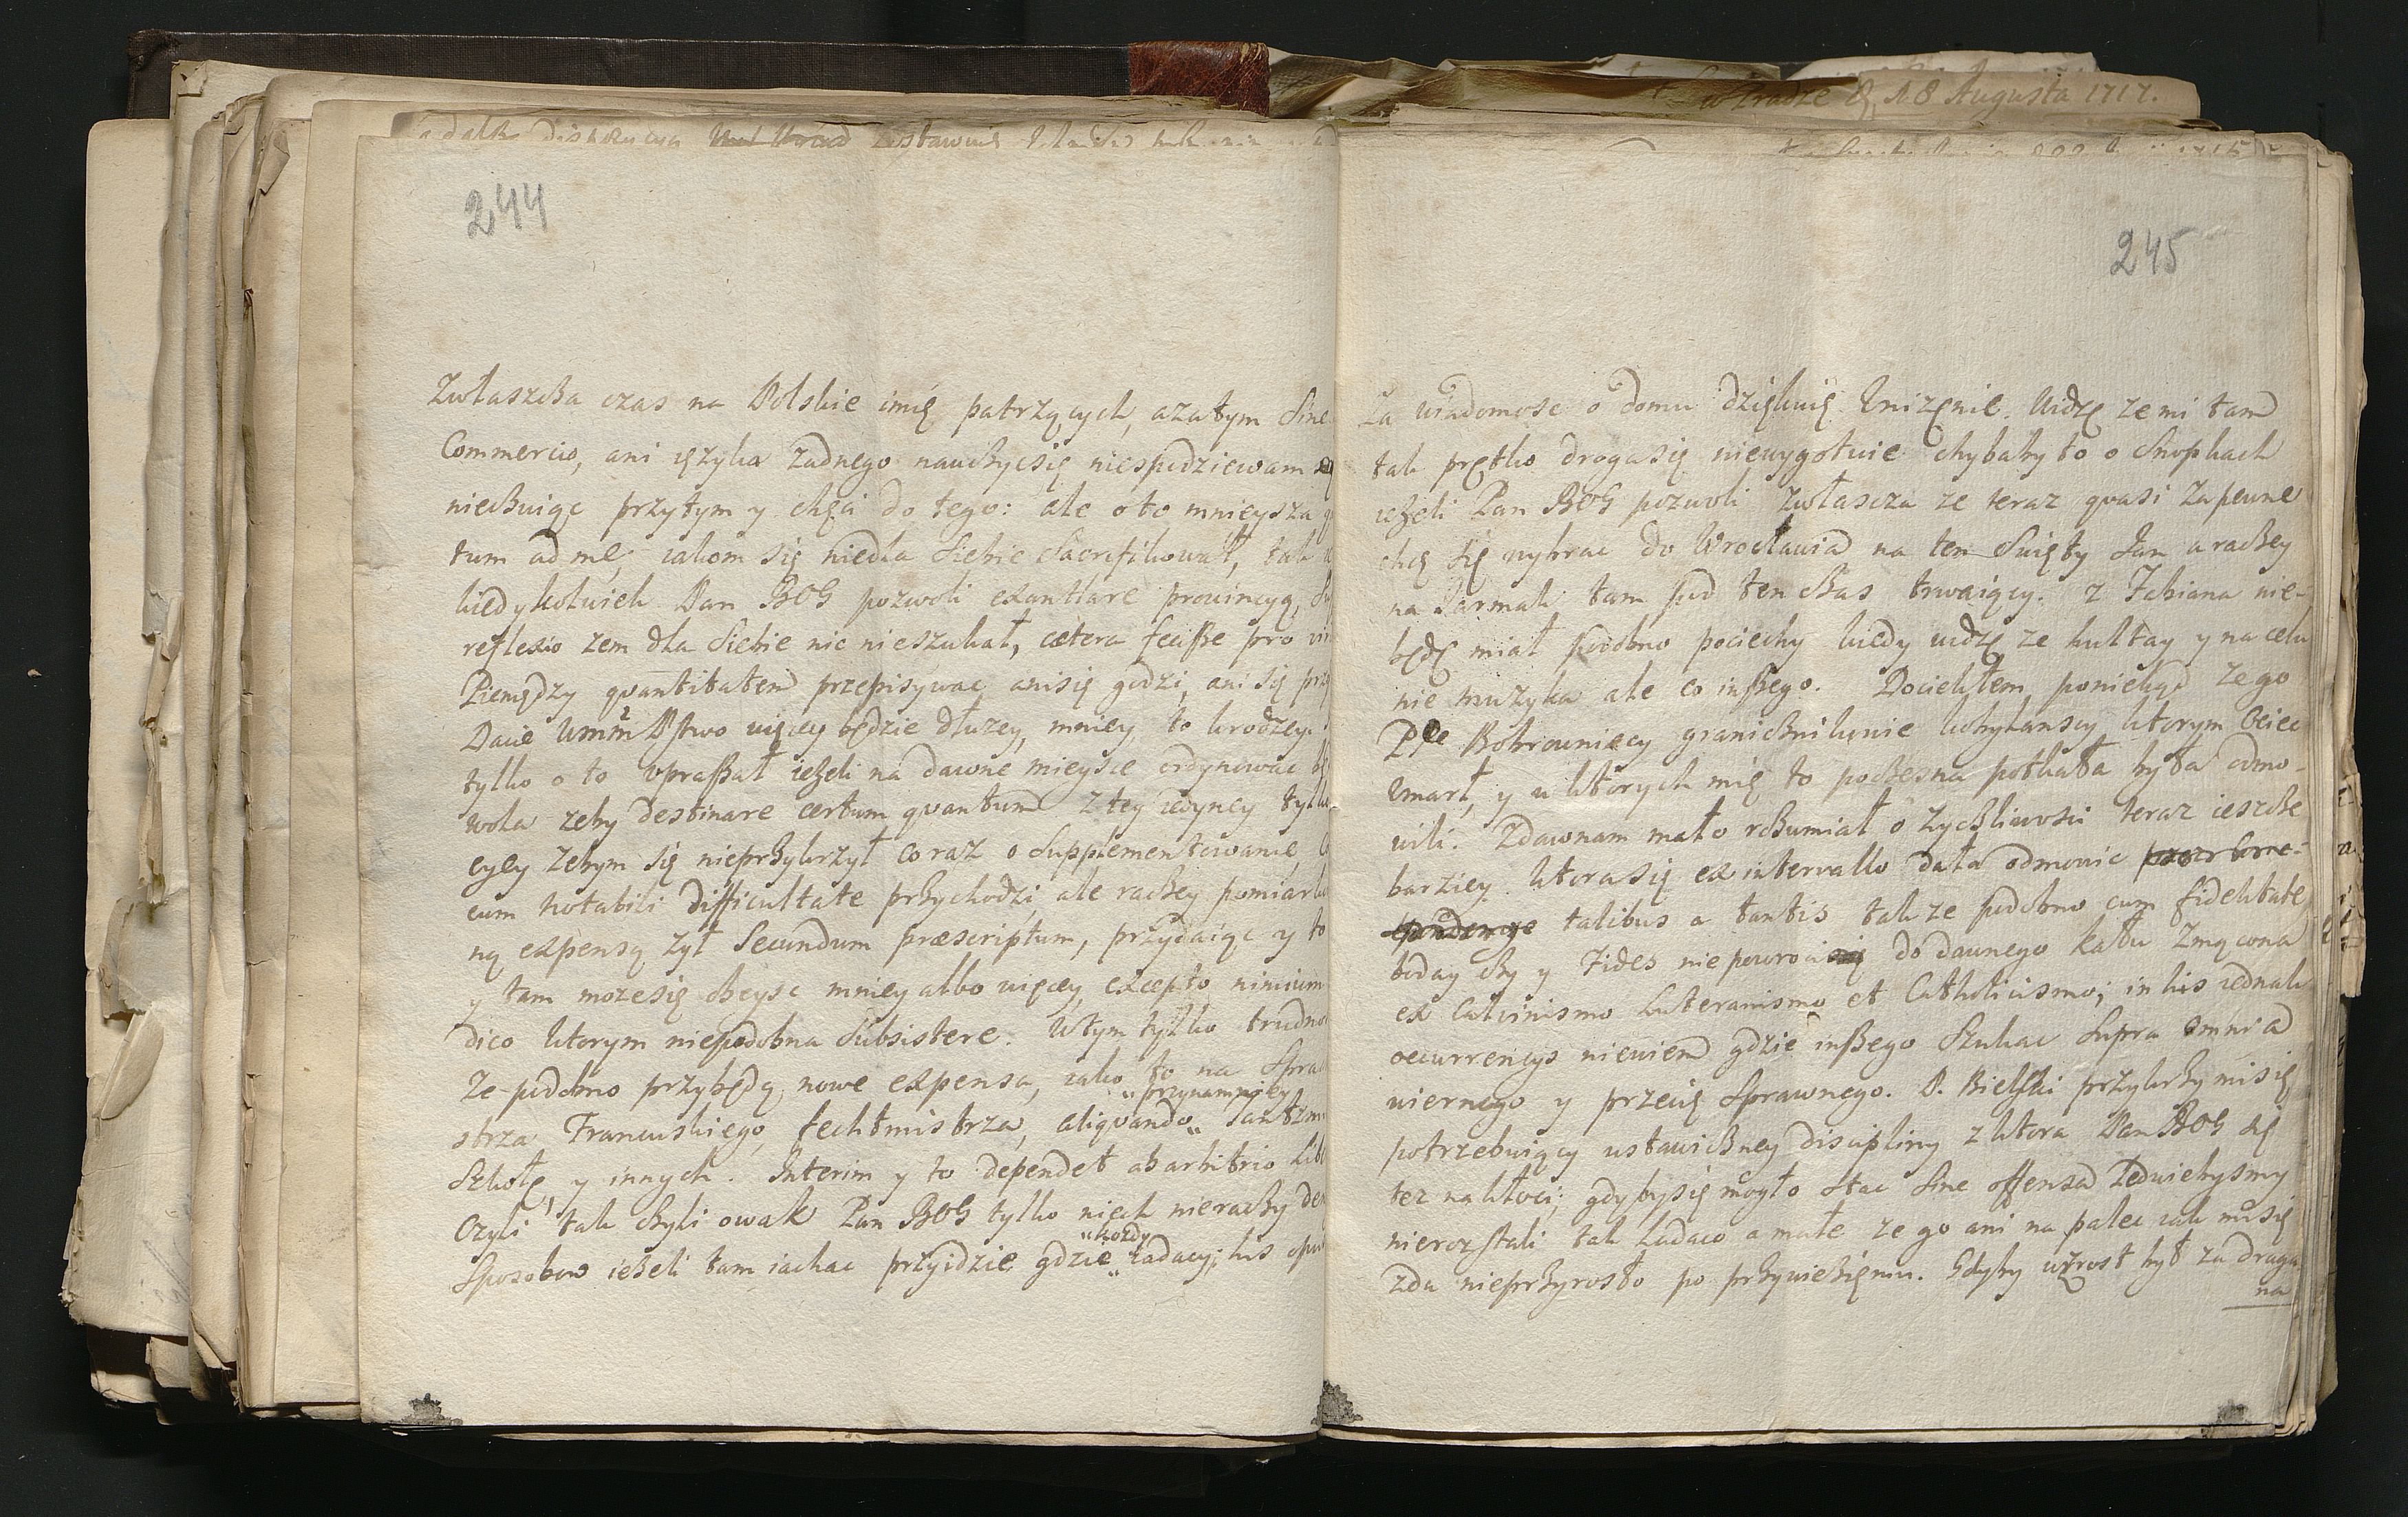 w Pradze d. 18 Augusta 1717.
244
Zwłaszcza czas na Polskie imię patrzących, azatym Sine
Commercio, ani ięzyka żadnego nauczycsię niespodziewam
nieczuiąc przytym y chęci do tego: ale oto mnieysza
tum ad me, iakom się niedla Siebie Sacrifikował, tak
kiedykolwiek Pan BOG pozwoli exantlare prowincyą,
reflexio zem dla Siebie nic nieszukał, cætera fecisse pro
Pieniędzy quantitatem przepisywac anisię godzi, ani się
Dacie WMM Pstwo więcey będzie dłuzey, mniey to krodzey.
tylko o to vpraszał ieżeli na dawne mieysce ordynowac
wola zeby destinare certum quantum z tey iedyney
cyey zebym się nieprzykrzył coraz o Supplementowanie,
cum notabili difficultate przychodzi, ale raczey
ną expensą zył Secundum præscriptum, przydaiąc y to
y tam mozesię obeysc mniey albo więcey, excepto nimium
dico ktorym niepodobna Subsistere. Wtym tylko
Ze podobno przybędą nowe expensa, iako to na
"przynamniey
strza Francuskiego, fechtmistrza, aliquando"
Szkołę, y innych. Interim y to dependet ab arbitrio
Czyli tak czyli owak Pan BOG tylko niech nieraczy
"kozdy
Sposobow ieżeli tam iachac przyidzie gdzie" ladacy; his
245
Za wiadomosc o domu dziękuię Vnizenie. Widzę ze mi tam
tak prętko drogasię niewygotuie chybaby to o Snopkach
ieżeli Pan BOG pozwoli zwłascza ze teraz quasi Zapewne
chcę się wybrac do Wrocławia na ten Swięty Jan a raczey
na Jarmak tam pod ten czas trwaiący. Z Fabiana nie-
będę miał podobno pociechy kiedy widzę ze hultay y na celu
nie muzyka ale co inszego. Dociekłem poniekąd ze go
PPe Bobrowniccy graniczni kunie kobylanscy ktorym Ociec
Vmarł, y u ktorych mię to poczesna potkała była odmo-
wili. Zdawnam mało rozumiał o zyczliwosci teraz ieszcze
barziey. ktorasię ex intervallo dała odmowic
talibus a tantis tak ze podobno cum fidelitate
boday czy y Fides niepowroci do dawnego kału Zmącona
ex Calvinismo Luteranismo et Catholicismo; in his iednak
occurrencys niewiem gdzie inszego Szukac Supra omnia
wiernego y przecię Sprawnego. P. Bielski przykrzy misię
potrzebuiący ustawiczney discipliny z ktora Pan BOG się
tez nakłoci; gdybysię mogło stac Sine offensa Ledwiebysmy
nierozstali tak ladaco a małe ze go ani na palec iak misię
zda nieprzyrosło po przywiezieniu. Gdyby wzrost był za draga
na